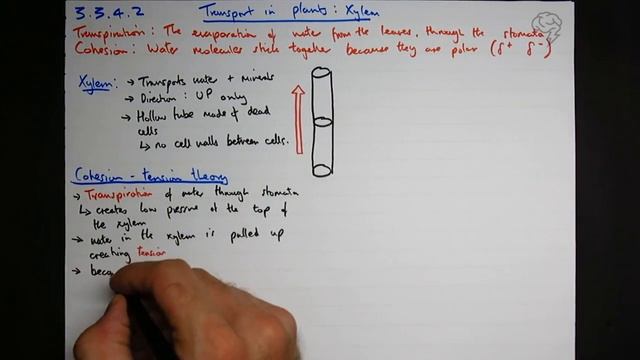 3.3.4.2 Transport in plants: Xylem
Transpiration: The evaporation of water from the leaves, through the stomata
Cohesion: Water molecules stick together because they are polar (δ+ δ-)
Xylem: → Transports water + minerals
→ Direction: UP only
→ Hollow tube made of dead
cells
↳ no cell walls between cells.
Cohesion - tension theory
→ Transpiration of water through stomata
↳ creates low pressure at the top of
the xylem
→ water in the xylem is pulled up
creating tension
→ beca